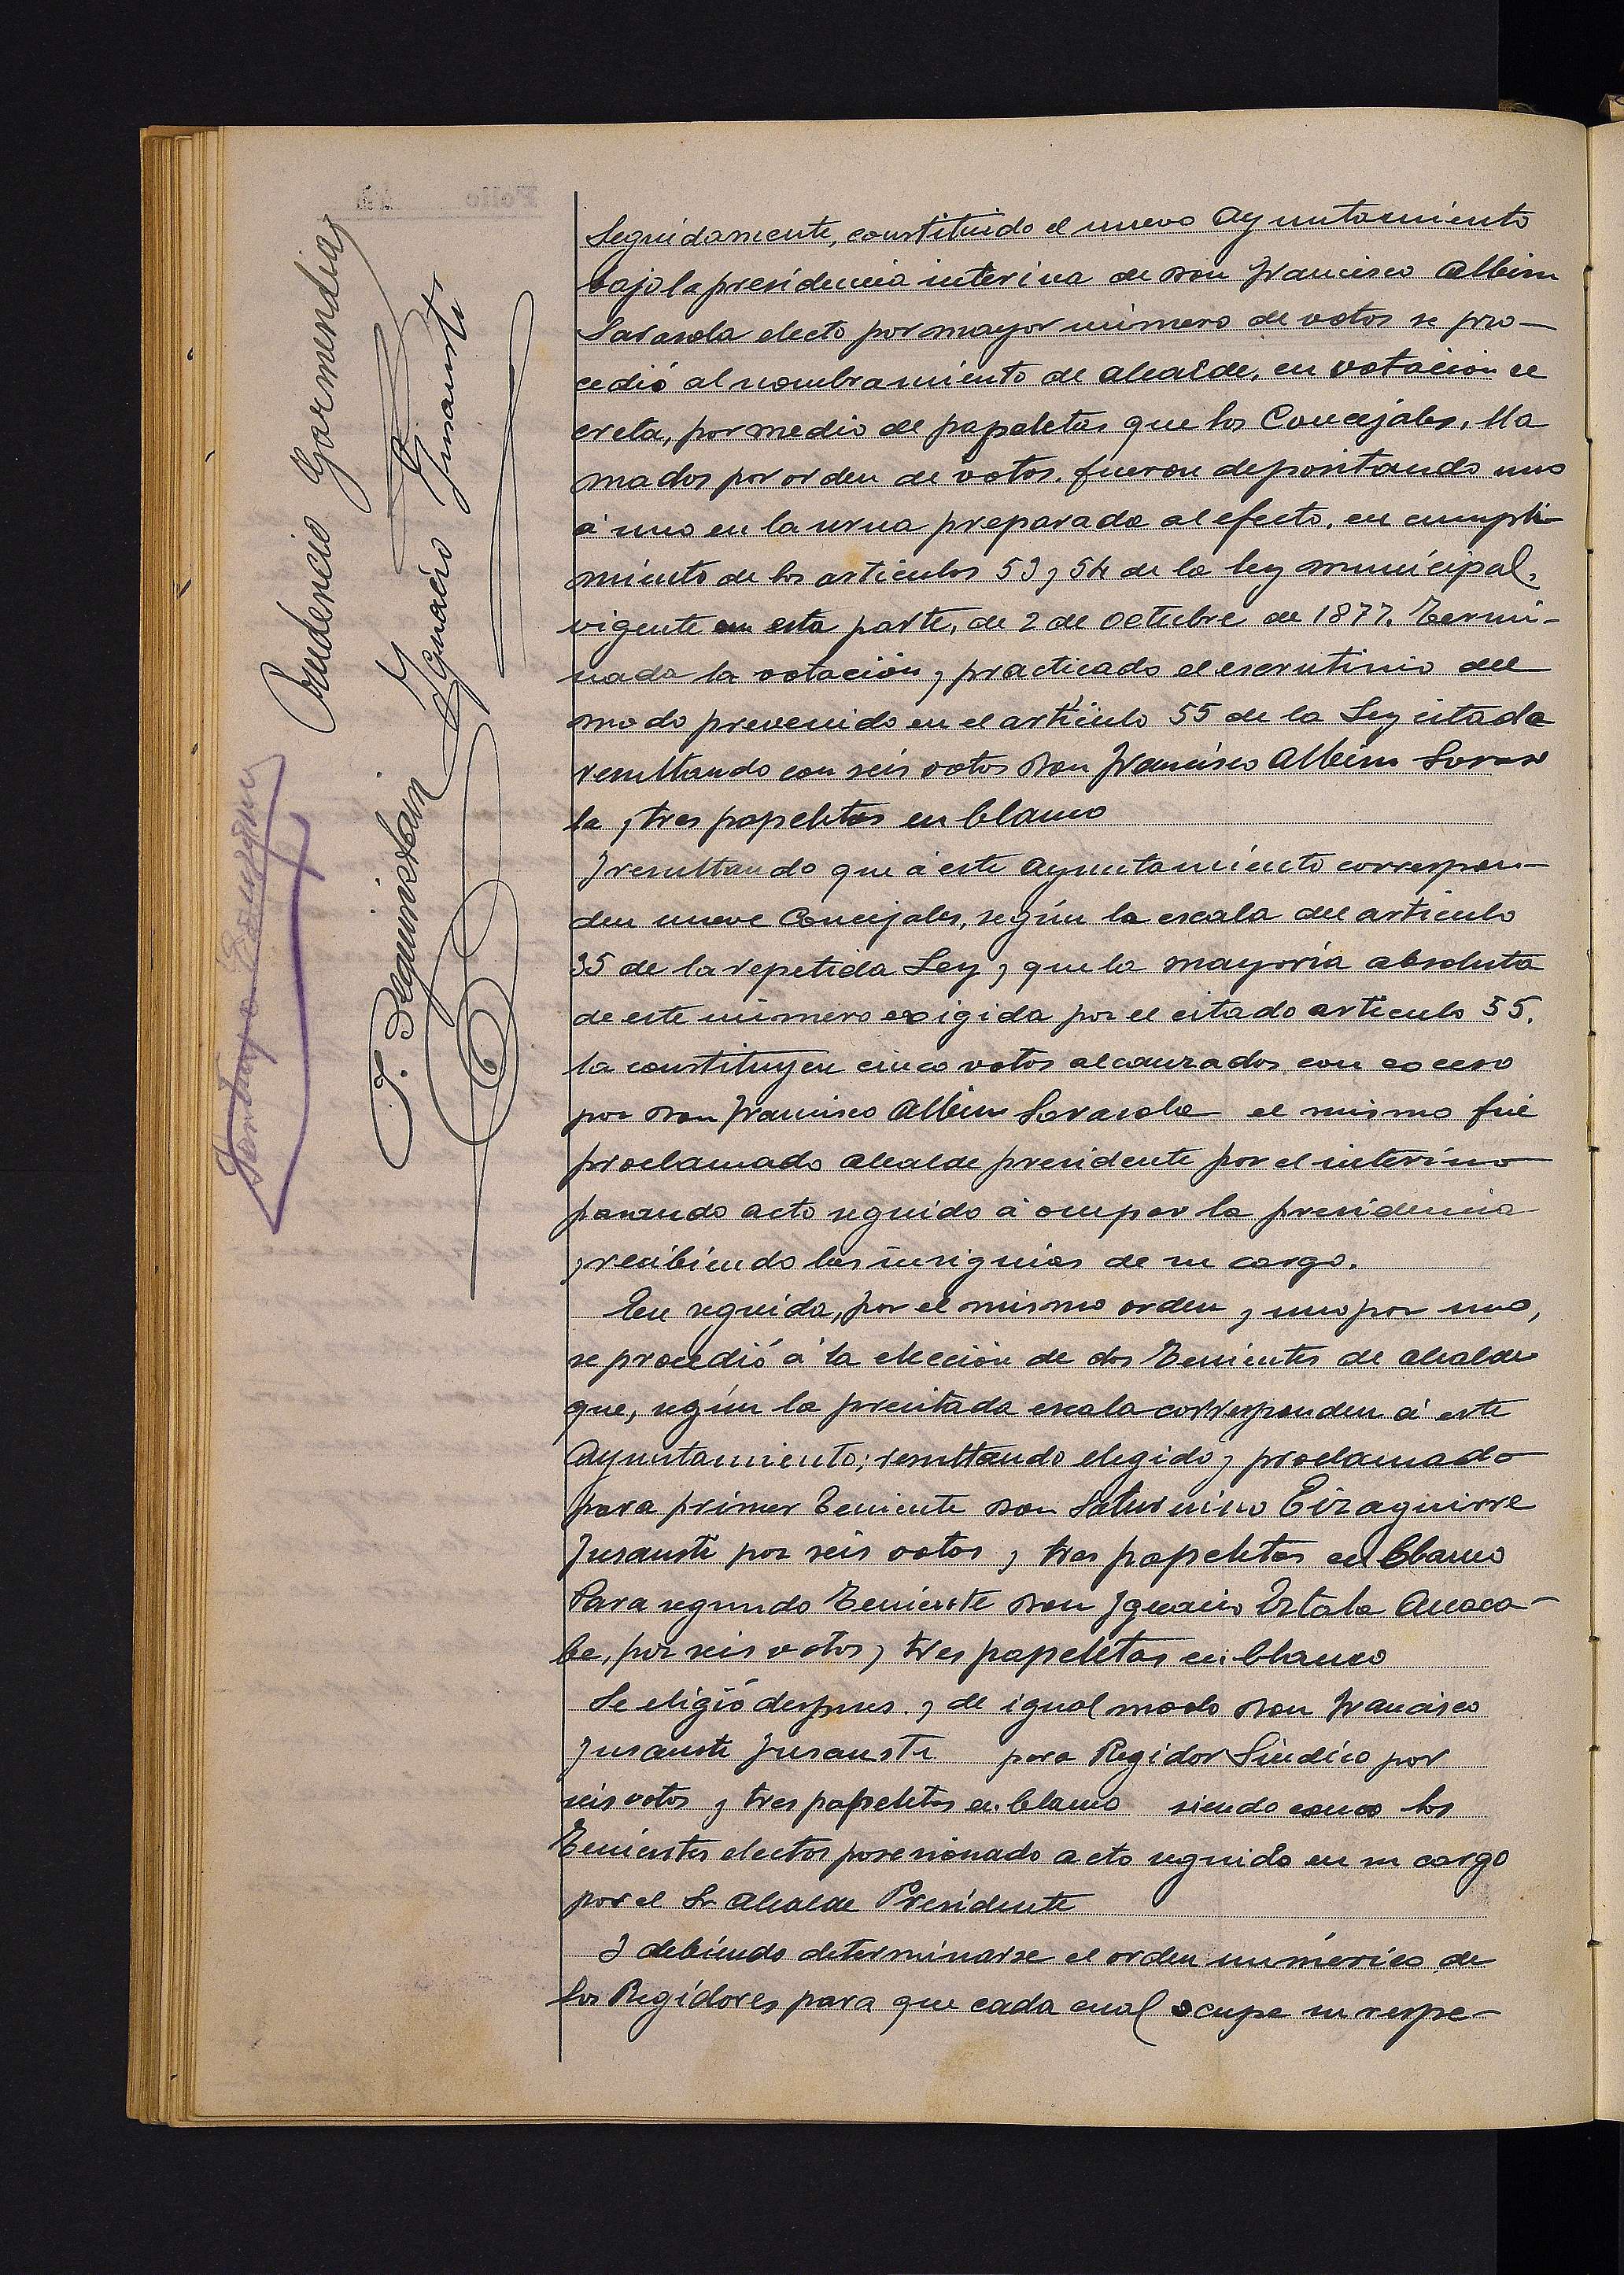 Seguidamente, constituido el nuevo Ayuntamiento
bajo la presidencia interina de Don Francisco Albisu
Sarasola electo por mayor número de votos se pro-
cedió al nombramiento de alcalde, en votación se
creta, por medio de papeletas que los Concejales, lla
mados por orden de votos, fueron depositando uno
á uno en la urna preparada al efecto, en cumpli-
miento de los artículos 53 y 54 de la ley municipal,
vigente en esta parte, de 2 de Octubre de 1877. Termi-
nada la votación y practicado el escrutinio del
modo prevenido en el artículo 55 de la Ley citada
resultando con seis votos Don Francisco Albisu Saraso
la y tres papeletas en blanco
Y resultando que á este Ayuntamiento correspon-
den nueve Concejales, según la escala del artículo
35 de la repetida Ley y que la mayoría absoluta
de este número exigida por el citado artículo 55,
la constituyen cinco votos alcanzados con exceso
por Don Francisco Albisu Sarasola el mismo fué
proclamado alcalde presidente por el interino
pasando acto seguido á ocupar la presidencia
y recibiendo las insignias de su cargo.
En seguida, por el mismo orden y uno por uno,
se procedió á la elección de dos Tenientes de alcalde
que, según la precitada escala corresponden á este
Ayuntamiento; resultando elegido y proclamado
para primer Teniente Don Saturnino Eizaguirre
Insausti por seis votos y tres papeletas en blanco
Para segundo Teniente Don Ignacio Estala Aucaca-
be, por seis votos y tres papeletas en blanco
Se eligió despues y de igual modo Don Francisco
Insausti Insausti para Regidor Síndico por
seis votos y tres papeletas en blanco siendo como los
Tenientes electos posesionado acto seguido en su cargo
por el Sr Alcalde Presidente
Y debiendo determinarse el orden numérico de
los Regidores para que cada cual ocupe su respe-
Prudencio Garmendia
Ignacio Insausti
J. Beguiristain
Santiago